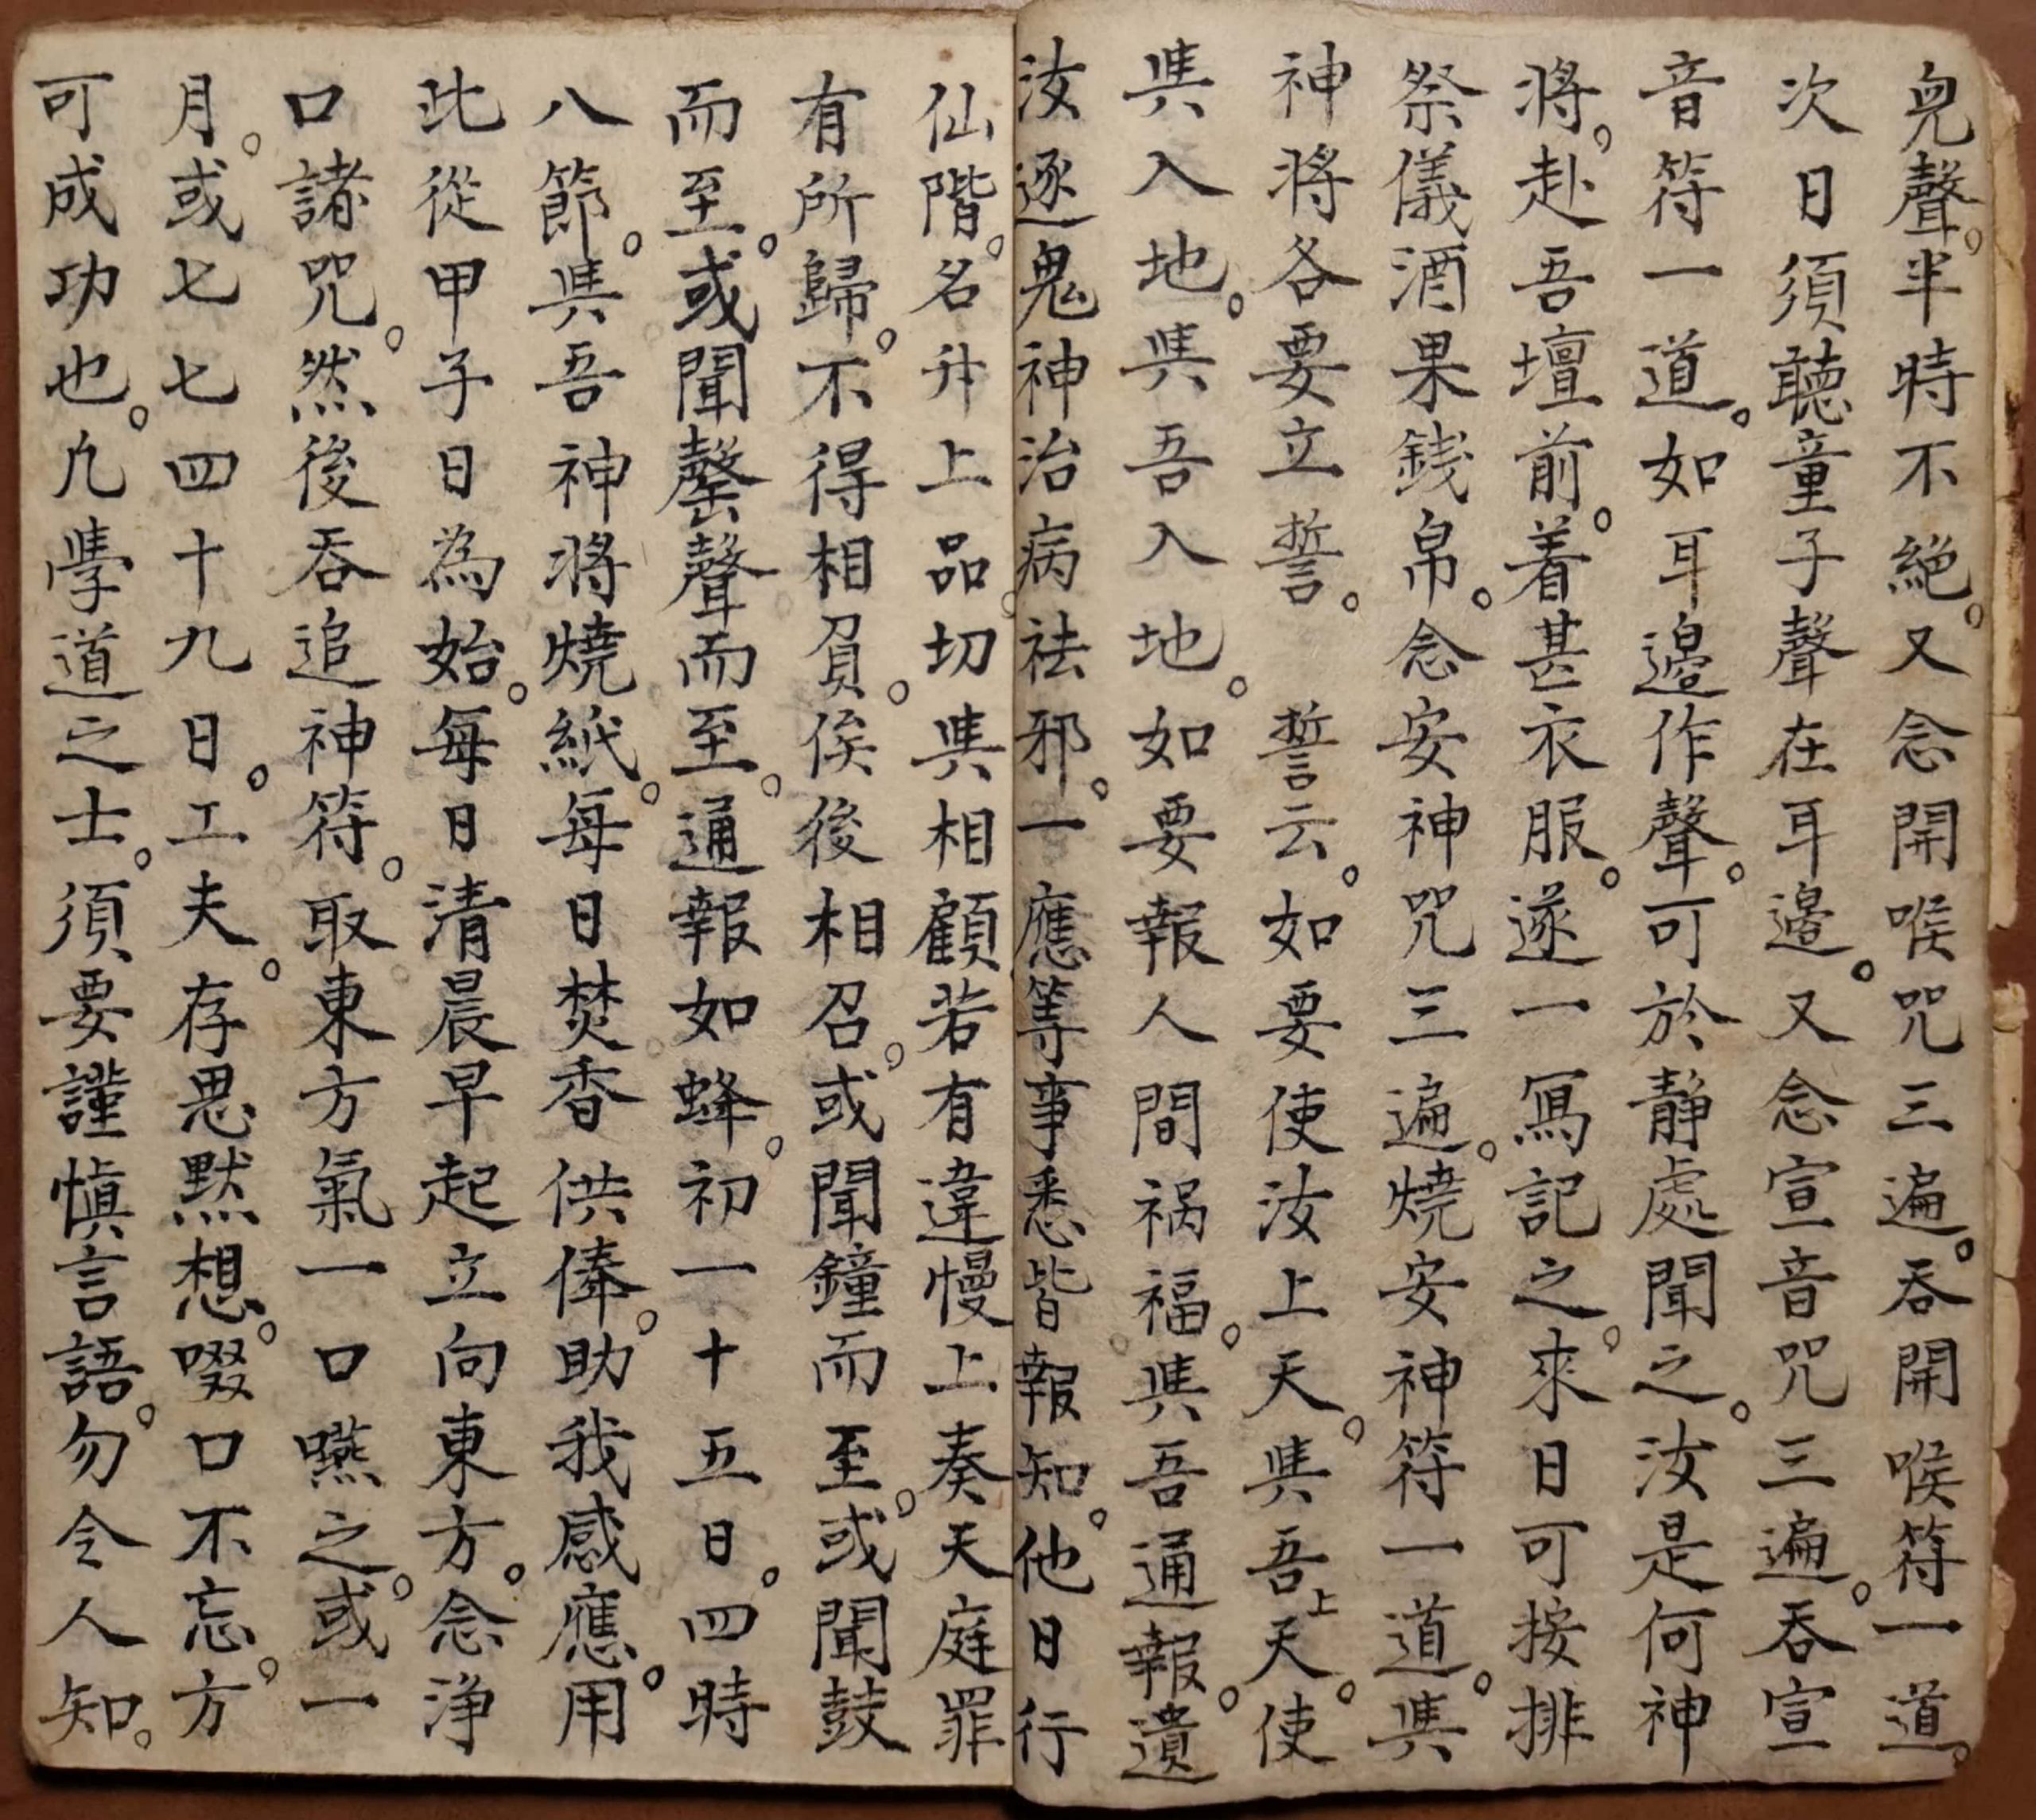 皃聲。半時不絕。又念開喉咒三遍。吞開喉符一道。
次日須聽童子聲在耳邊。又念宣音咒三遍。吞宣
音符一道。如耳邊作聲。可於靜處聞之。汝是何神
將。赴吾壇前。着甚衣服。遂一寫記之。來日可按排
祭儀酒果錢帛。念安神咒三遍。燒安神符一道。與
神將各要立誓。誓云。如要使汝上天。與吾上天。使
與入地。與吾入地。如要報人間禍福。與吾通報。遣
汝逐鬼神治病祛邪。一應等事悉皆報知。他日行
仙階。名升上品。切與相顧若有違慢上奏天庭罪
有所歸。不得相負。俟後相召。或聞鐘而至。或聞鼓
而至。或聞磬聲而至。通報如蜂。初一十五日。四時
八節。與吾神將燒紙。每日焚香供俸。助我感應。用
此從甲子日為始。每日清晨早起立向東方。念淨
口諸咒。然後吞追神符。取東方氣一口嚥之。或一
月。或七七四十九日。工夫。存思默想。啜口不忘。方
可成功也。凢學道之士。須要謹慎言語。勿令人知。